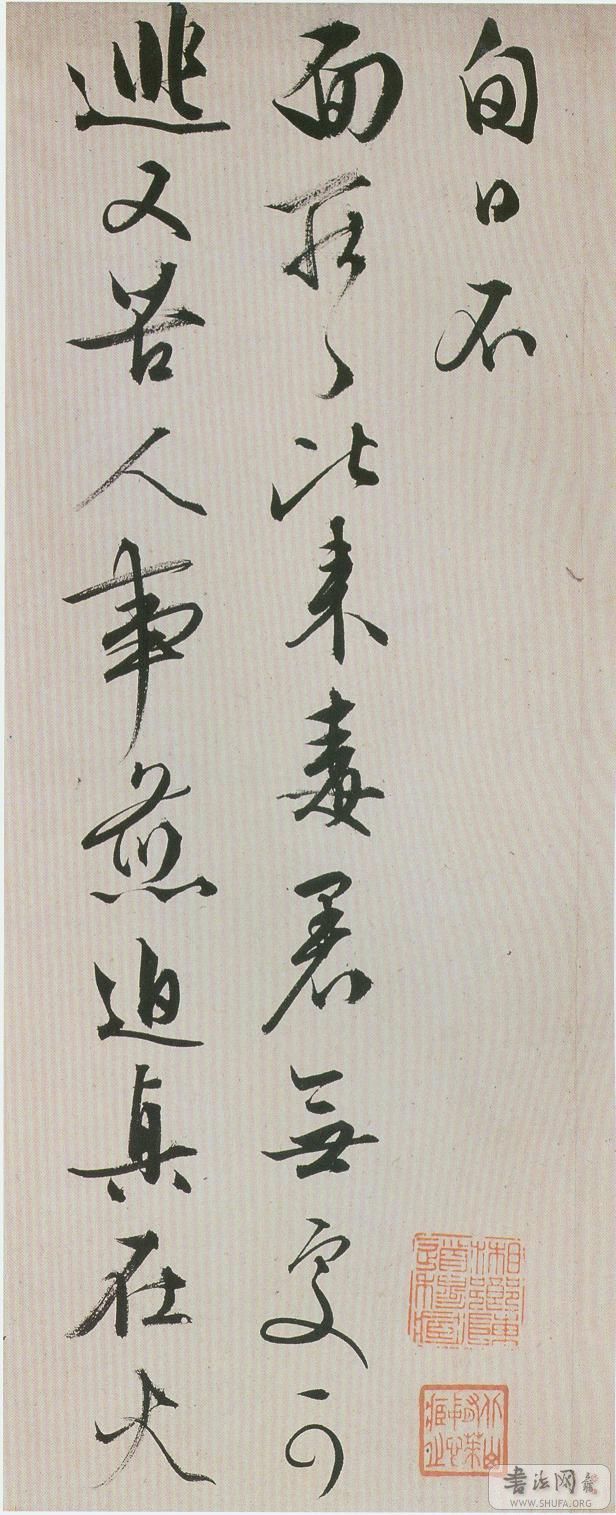 旬日不
面比来毒暑無處可
逃又苦人事煎迫真在火
書法网
WWW.SHUFA.ORG